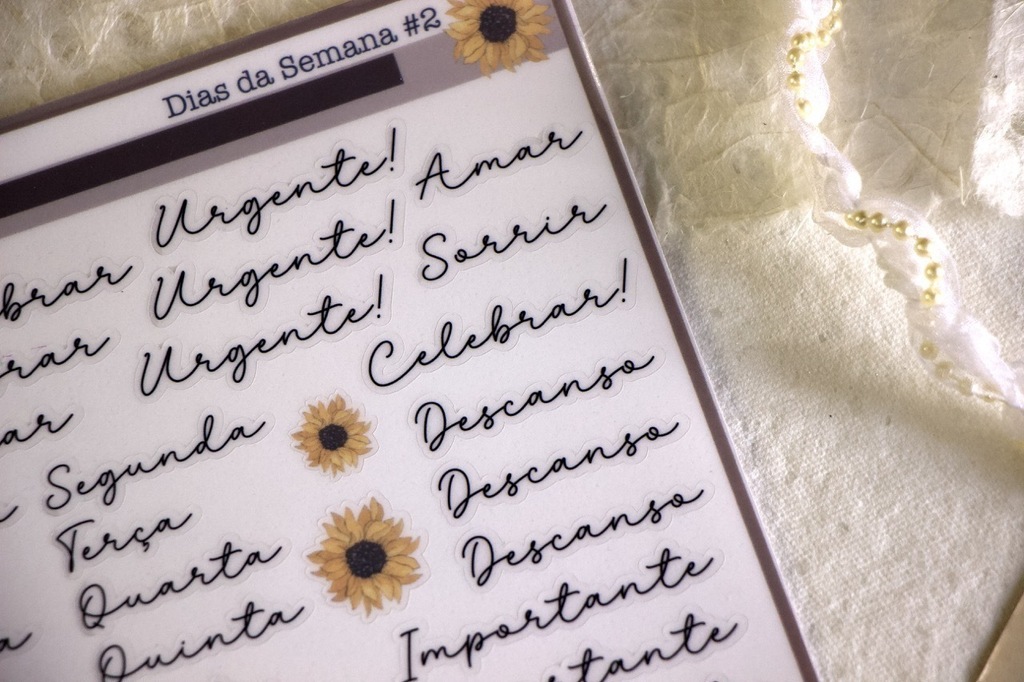 Dias da Semana #2
Urgente!
Urgente!
Urgente!
Amar
Sorrir
Celebrar!
Segunda
Terça
Quarta
Quinta
Descanso
Descanso
Descanso
Importante